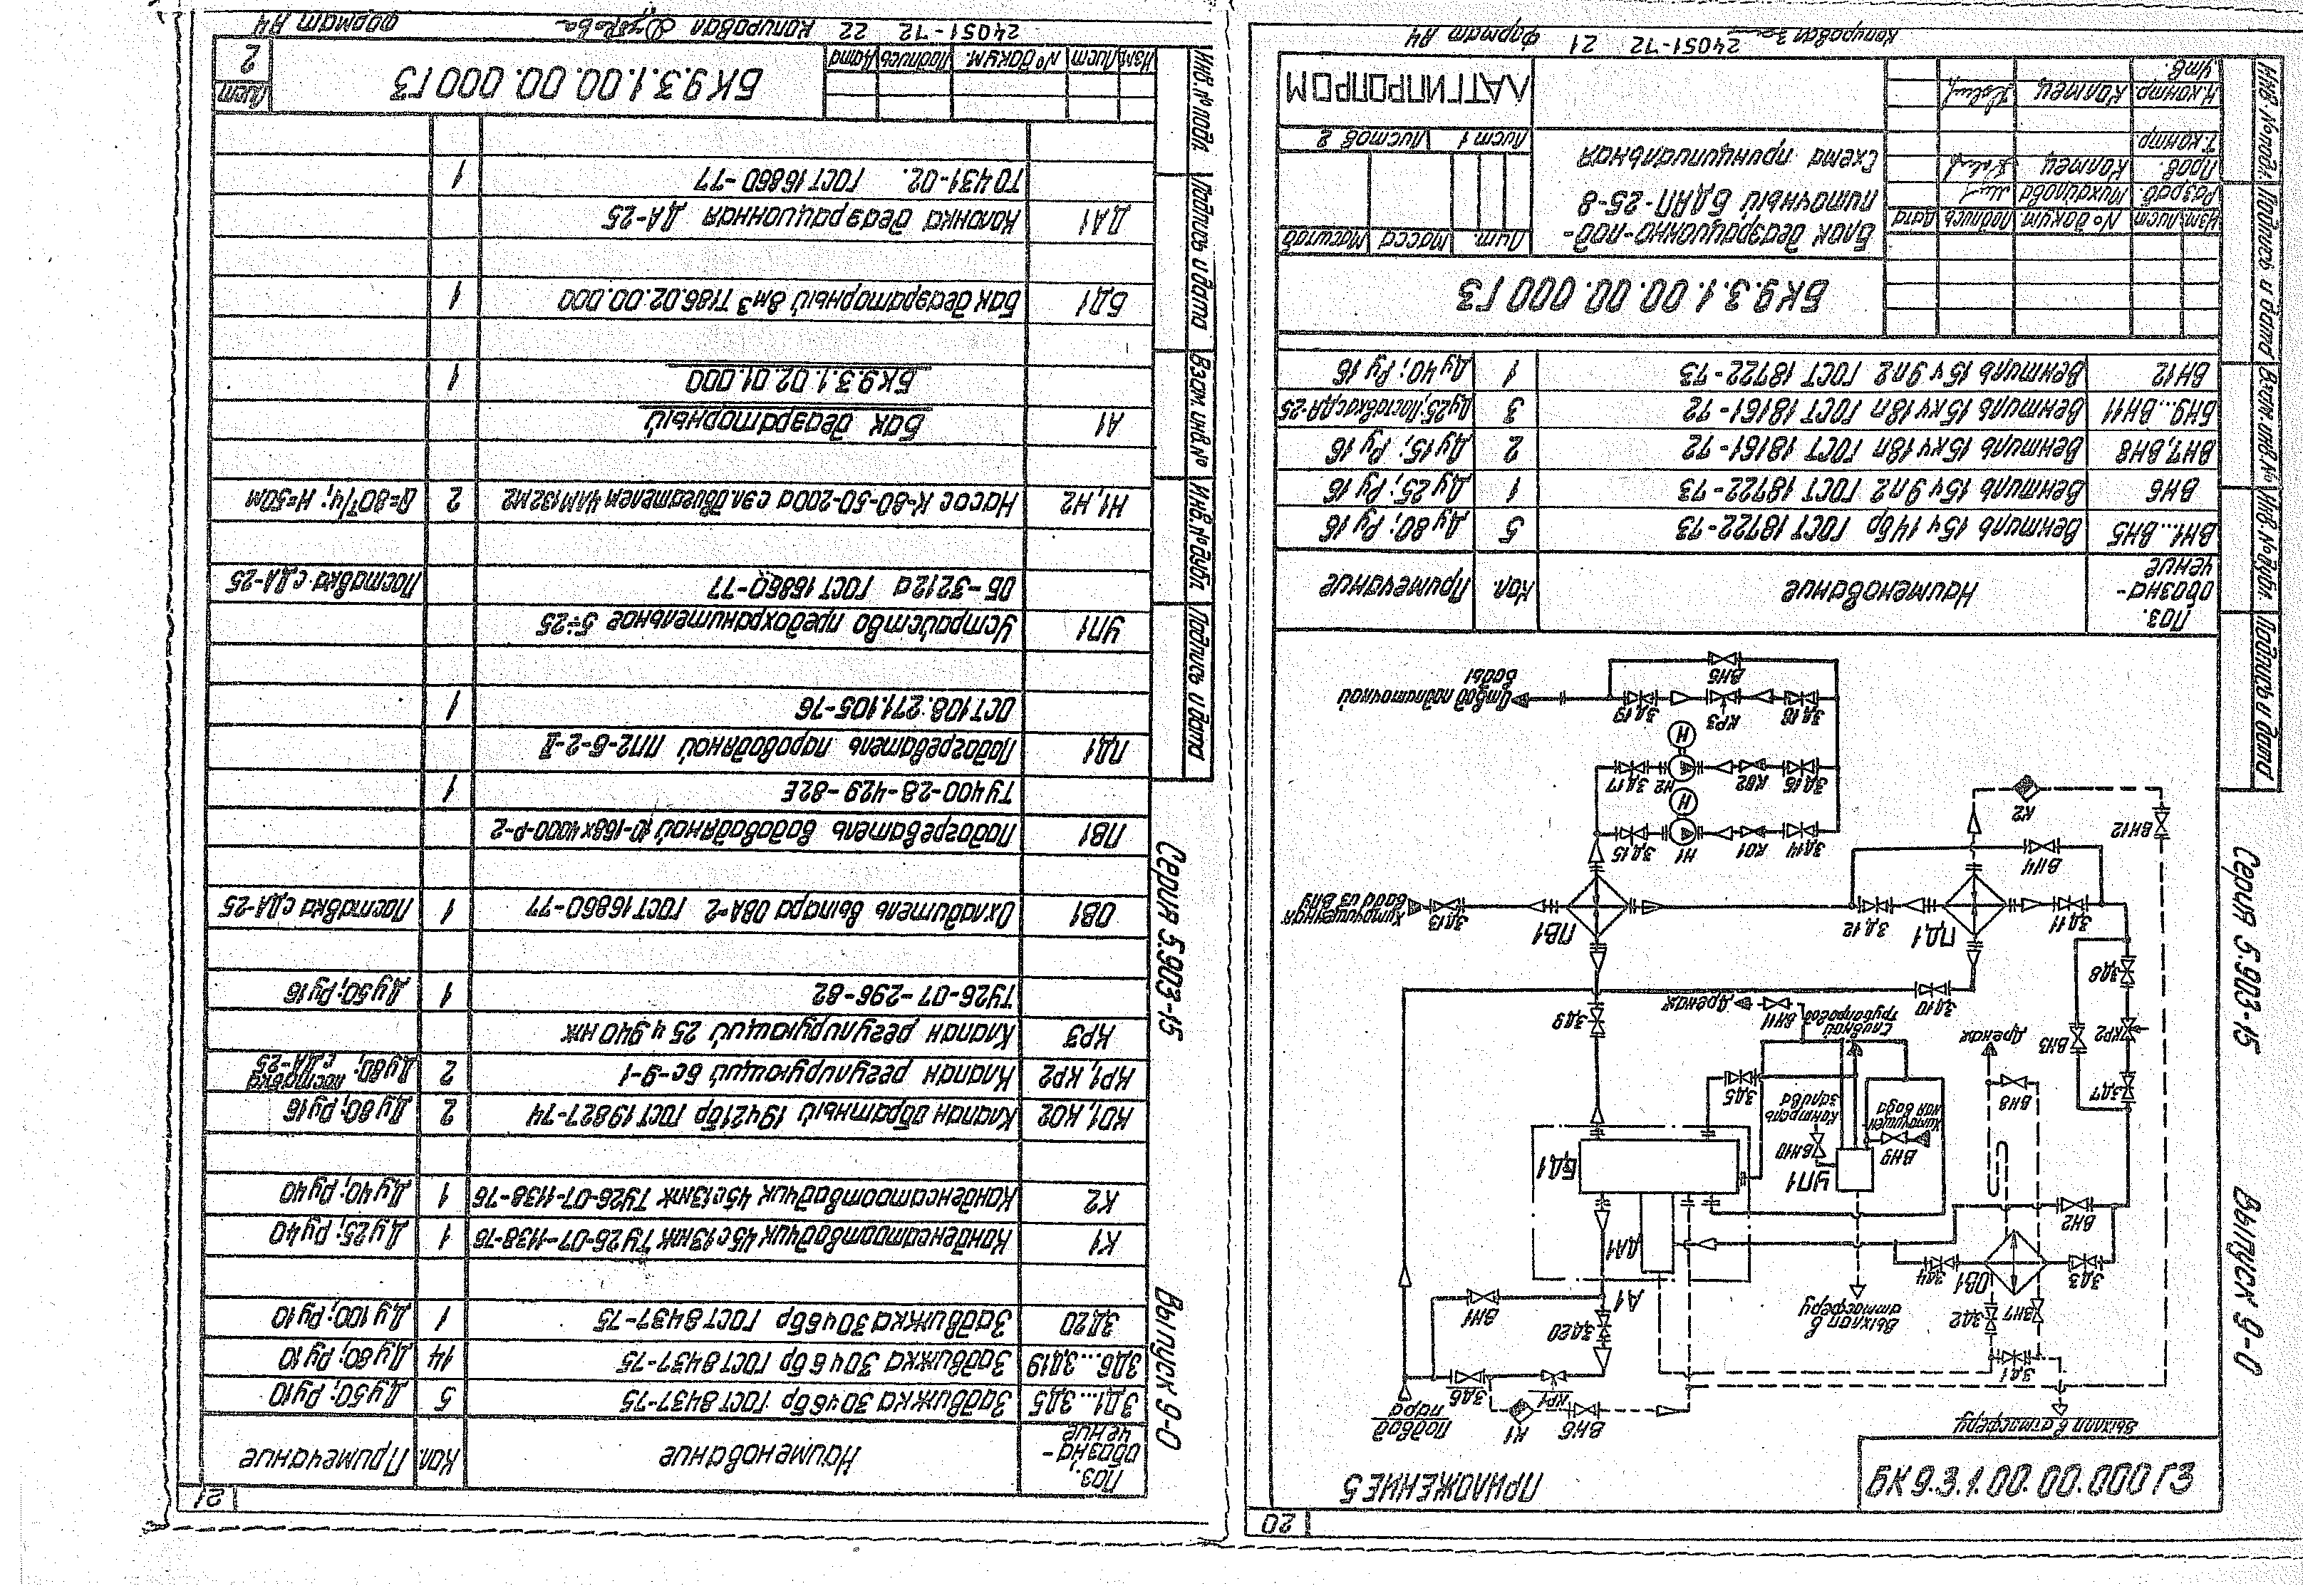 20
ПРИЛОЖЕНИЕ 5
БК 9.3.1.00.00.000 Г3
Серия 5.903-15
Выпуск 9-0
Выхлоп в атмосферу
Подвод
пара
К1
ВН6
ЗД6
КР1
ЗД1
ЗД20
ВН1
ЗД2
ВН7
Выхлоп в
атмосферу
А1
ЗД3
ОВ1
ЗД4
ДА1
ВН2
БД1
УП1
ВН9
ВН10
Химочищен-
ная вода
контроль
залива
ВН8
ЗД5
ЗД7
КР2
ВН3
ЗД8
Дренаж
Сливной
трубопровод
ВН11
Дренаж
ЗД9
ЗД10
ПВ1
ПД1
ЗД11
ЗД12
ЗД13
Химочищенная
вода из ВПУ
ВН4
ВН12
К2
ЗД15
Н1
КО1
ЗД14
Н
ЗД17
Н2
КО2
ЗД16
Н
ЗД19
КР3
ЗД18
ВН5
Отвод подпиточной
воды
Поз.
обозна-
чение
Наименование
Кол.
Примечание
ВН1...ВН5 Вентиль 15ч 14бр ГОСТ 18722-73 5 Ду 80; Ру 16
ВН6 Вентиль 15ч 9п2 ГОСТ 18722-73 1 Ду 25; Ру 16
ВН7, ВН8 Вентиль 15кч 18п ГОСТ 18161-72 2 Ду 15; Ру 16
ВН9...ВН11 Вентиль 15кч 18п ГОСТ 18161-72 3 Ду25; Поставка с ДА-25
ВН12 Вентиль 15ч 9п2 ГОСТ 18722-73 1 Ду 40; Ру 16
БК 9.3.1.00.00.000 Г3
Изм. Лист № докум. Подпись Дата
Разраб. Михайлова
Пров. Калтец
Т.контр.
Н.контр. Калтец
Утв.
Блок деаэрационно-под-
питочный БДПП-25-8
Схема принципиальная
Лит. Масса Масштаб
Лист 1 Листов 2
ЛАТГИПРОПРОМ
Инв. № подл. Подпись и дата Взам. инв. № Инв. № дубл. Подпись и дата
Копировал
24051-72 21 Формат А4
21
Серия 5.903-15
Выпуск 9-0
Поз.
обозна-
чение
Наименование
Кол.
Примечание
ЗД1...ЗД5 Задвижка 30ч6бр ГОСТ 8437-75 5 Ду 50; Ру10
ЗД6...ЗД19 Задвижка 30ч6бр ГОСТ 8437-75 14 Ду 80; Ру 10
ЗД20 Задвижка 30ч6бр ГОСТ 8437-75 1 Ду 100; Ру10
К1 Конденсатоотводчик 45с13нж ТУ26-07-1138-76 1 Ду25; Ру40
К2 Конденсатоотводчик 45с13нж ТУ26-07-1138-76 1 Ду 40; Ру 40
КО1, КО2 Клапан обратный 19ч21бр ГОСТ 19827-74 2 Ду 80; Ру16
КР1, КР2 Клапан регулирующий 6с-9-1 2 Ду80; поставка с ДА-25
КР3 Клапан регулирующий 25ч 940нж
ТУ26-07-296-82 1 Ду50; Ру16
ОВ1 Охладитель выпара ОВА-2 ГОСТ 16860-77 1 Поставка с ДА-25
ПВ1 Подогреватель водоводяной 10-168х4000-Р-2
ТУ400-28-429-82Е 1
ПД1 Подогреватель пароводяной ПП2-6-2-II
ОСТ108.271.105-76 1
УП1 Устройство предохранительное 5÷25
ОБ-3212а ГОСТ 16860-77 Поставка с ДА-25
Н1, Н2 Насос К-80-50-200а с эл.двигателем 4АМ132М2 2 Q=80т/ч; Н=50м
А1 Бак деаэраторный
БК9.3.1.02.01.000 1
БД1 Бак деаэраторный 8м3 Т186.02.00.000 1
ДА1 Колонка деаэрационная ДА-25
ТО431-02. ГОСТ 16860-77 1
Изм. Лист № докум. Подпись Дата
БК 9.3.1.00.00.000 Г3
Лист
2
Инв. № подл. Подпись и дата Взам. инв. № Инв. № дубл. Подпись и дата
24051-72 22 Копировал формат А4